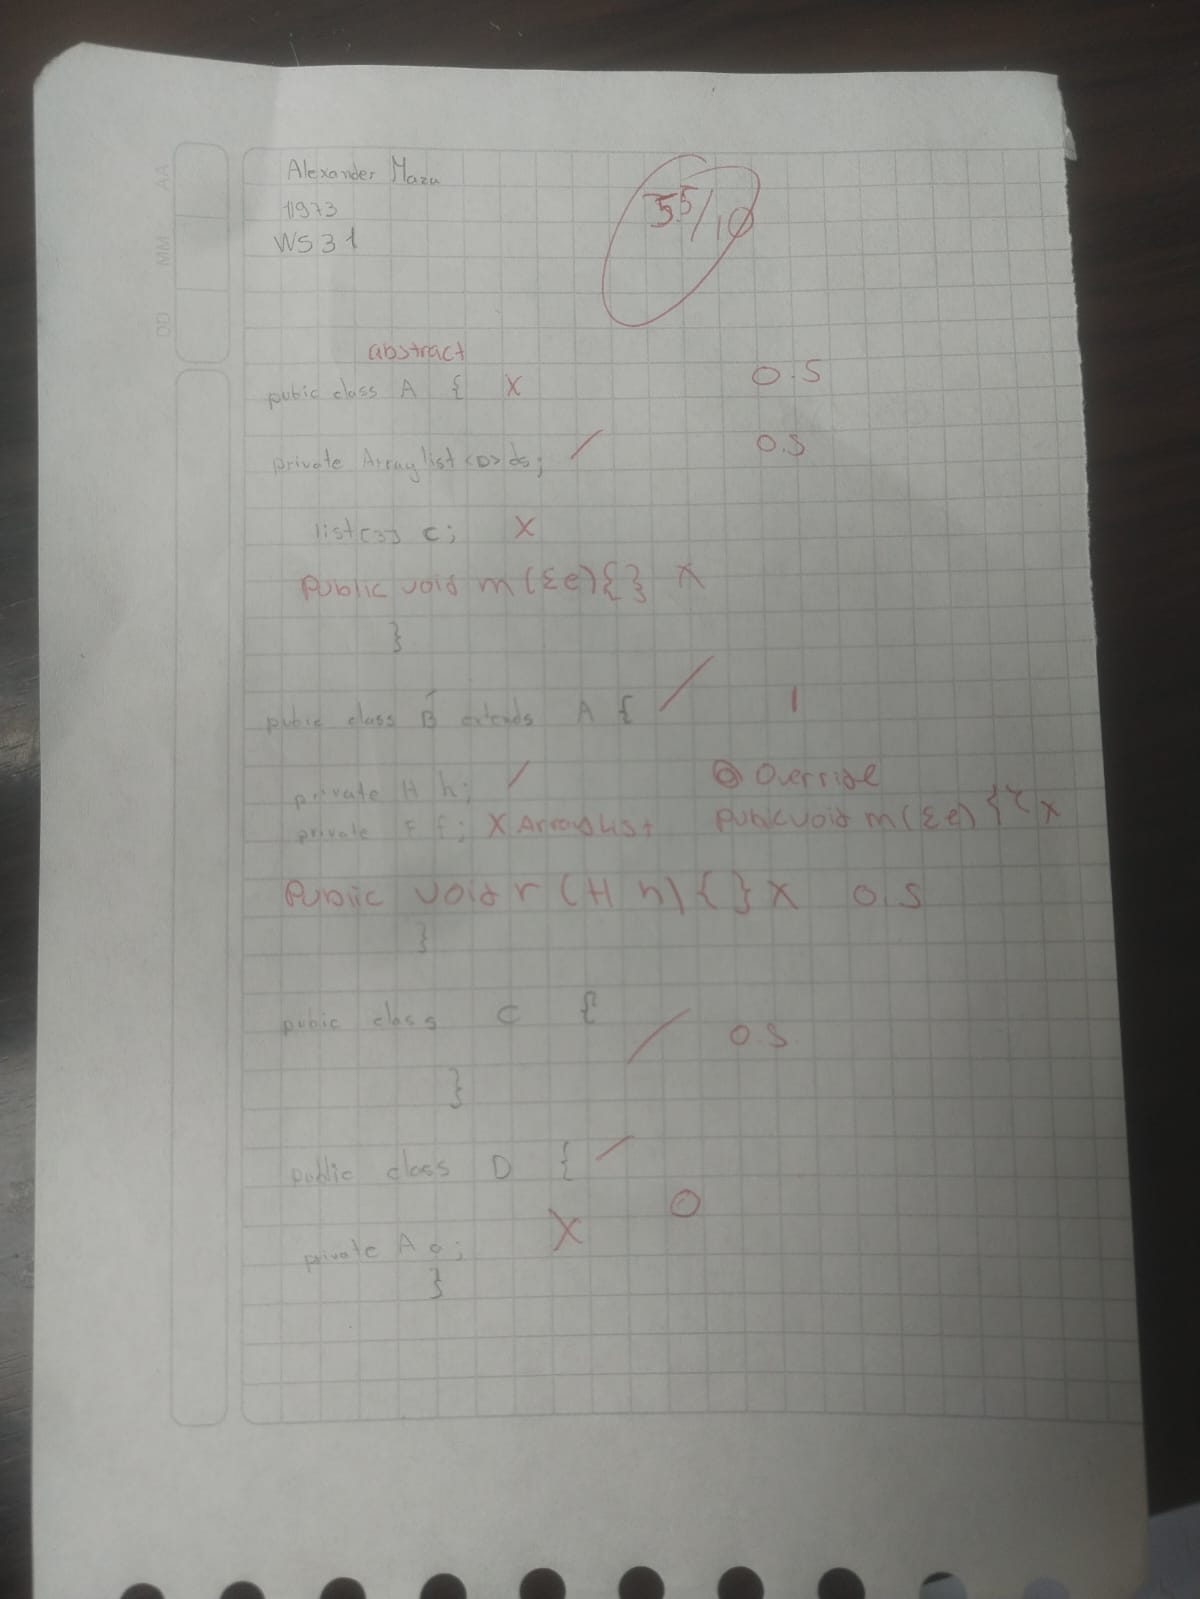 AA
MM
DD
Alexander Maza
11973
WS31
5.5/10
abstract
pubic class A { X 0.5
private Arraylist <D> ds; / 0.5
list[3] c; X
Public void m (Ee){} X
}
pubic class B extends A { / 1
private H h; / @ Override
private F f; X ArrayList Public void m (Ee) {} X
Public void r (H h) {} X 0.5
}
pubic class C { / 0.5
}
public class D { /
private A a; X 0
}